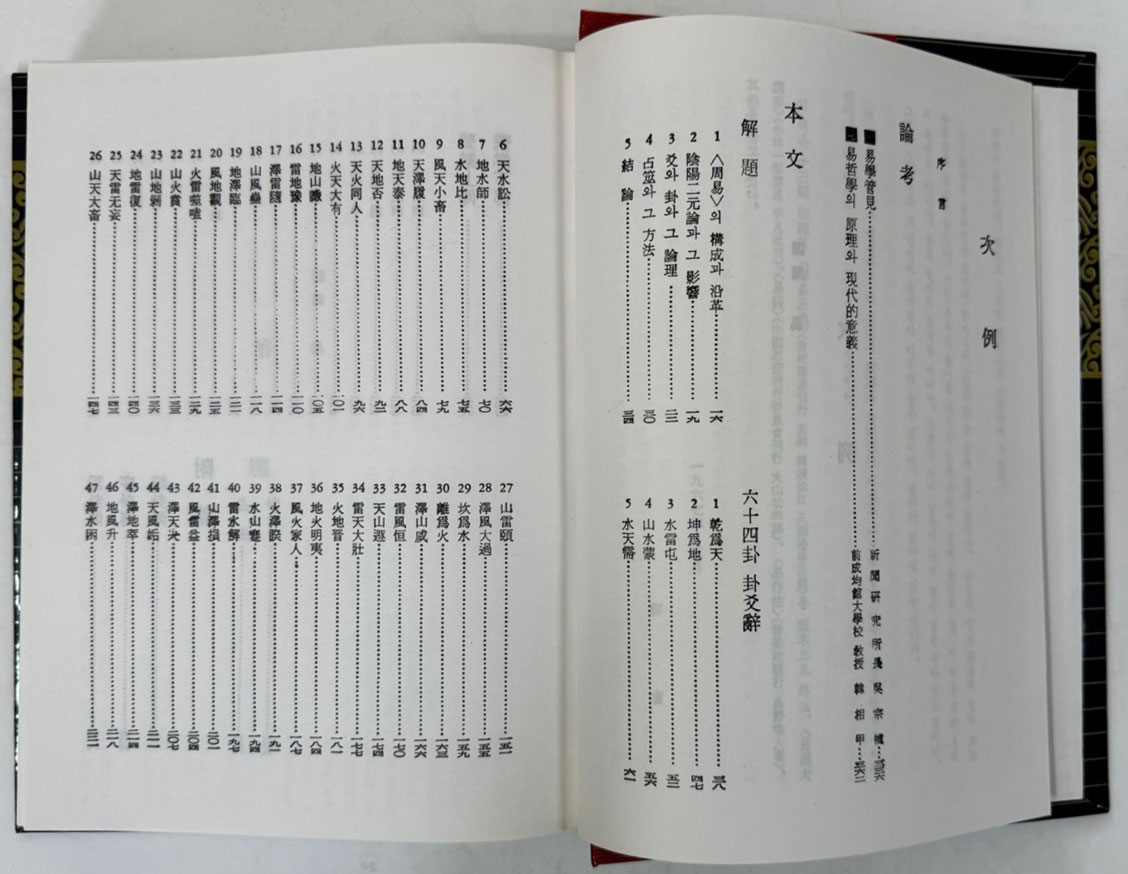 次例
序言
論考
■易學管見……新聞研究所長 吳宗
■易哲學의 原理와 現代的意義……前成均館大學校 敎授 韓相甲
本文
解題
1 〈周易〉의 構成과 沿革……一六
2 陰陽二元論과 그 影響……一九
3 爻와 卦와 그 論理……二三
4 占筮와 그 方法……三〇
5 結論……三四
六十四卦 卦爻辭
1 乾爲天……三八
2 坤爲地……四七
3 水雷屯……五二
4 山水蒙……五六
5 水天需……六一
6 天水訟……六六
7 地水師……七〇
8 水地比……七五
9 風天小畜……七九
10 天澤履……八四
11 地天泰……八八
12 天地否……九二
13 天火同人……九六
14 火天大有……一〇一
15 地山謙……一〇五
16 雷地豫……一一〇
17 澤雷隨……一一四
18 山風蠱……一一八
19 地澤臨……一二一
20 風地觀……一二五
21 火雷噬嗑……一二九
22 山火賁……一三三
23 山地剝……一三六
24 地雷復……一四〇
25 天雷无妄……一四三
26 山天大畜……一四七
27 山雷頤……一五一
28 澤風大過……一五五
29 坎爲水……一五九
30 離爲火……一六三
31 澤山咸……一六六
32 雷風恒……一七〇
33 天山遯……一七四
34 雷天大壯……一七七
35 火地晉……一八一
36 地火明夷……一八四
37 風火家人……一八七
38 火澤睽……一九一
39 水山蹇……一九四
40 雷水解……一九七
41 山澤損……二〇一
42 風雷益……二〇四
43 澤天夬……二〇七
44 天風姤……二一一
45 澤地萃……二一四
46 地風升……二一八
47 澤水困……二二一